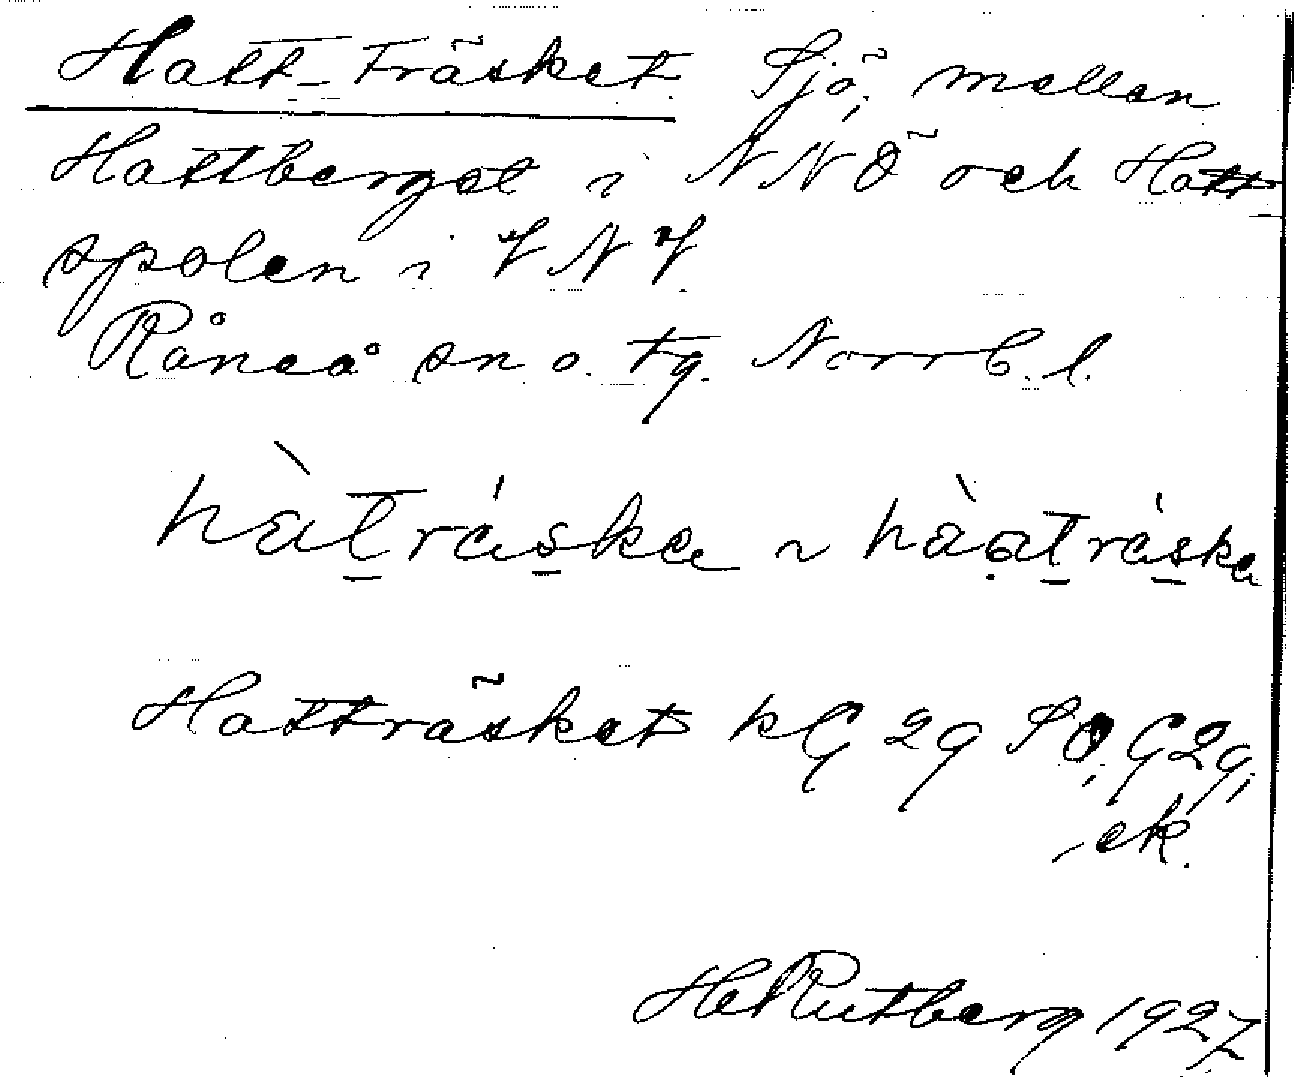 Hatt-Träsket Sjö, mellan
Hattberget i NNÖ och Hatt-
spolen i VNV.
Råneå sn o. tg. Norrb. l.
hàtráska ~ hàatráska
Hatträsket kG 29 SO, G29,
ek.
HeRutberg 1927